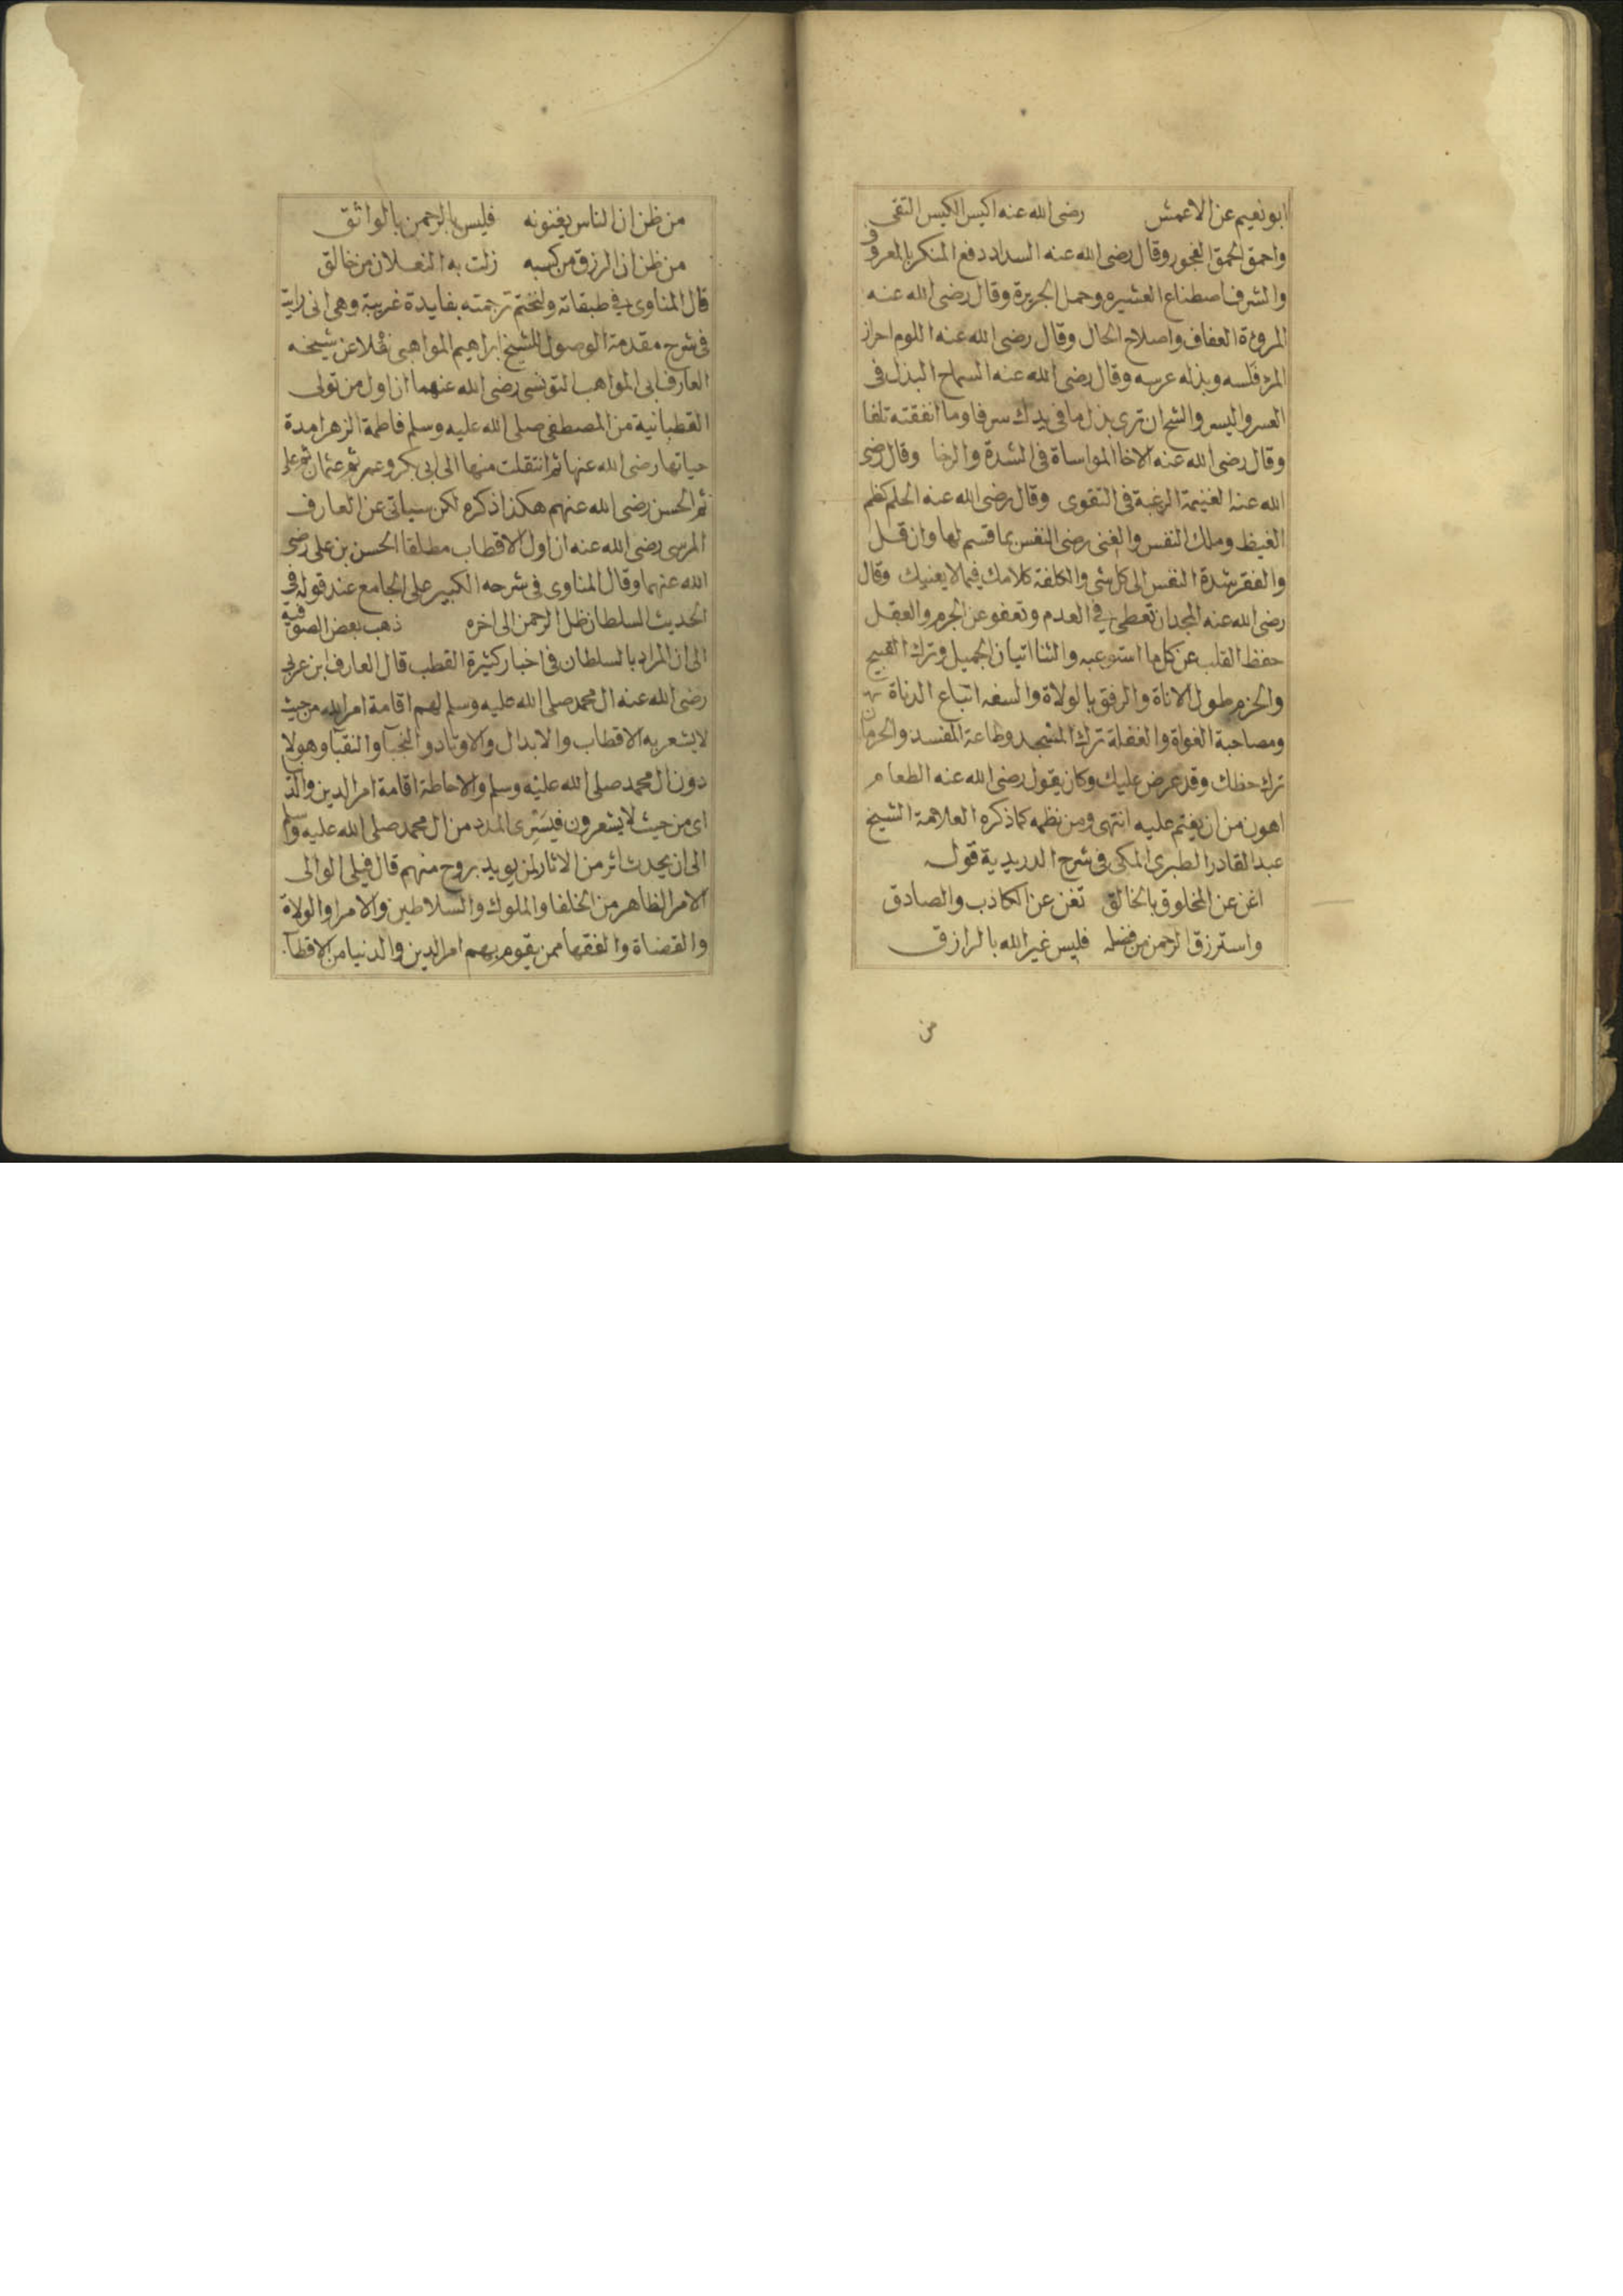 ابو نعيم عن الاعمش رضى الله عنه اكيس الكيس التقى
واحمق الحمق الفجور وقال رضى الله عنه السداد دفع المنكر بالمعروف
والشرف اصطناع العشيره وحمل الجريرة وقال رضى الله عنه
المروءة العفاف واصلاح الحال وقال رضى الله عنه اللوم احراز
المرء فلسه وبذله عرسه وقال رضى الله عنه السماح البذل فى
العسر واليسر والشح ان ترى بذل ما فى يدك سرفا وما انفقته تلفا
وقال رضى الله عنه الاخا المواساة فى الشدة والرخا وقال رضى
الله عنه الغنيمة الرغبة فى التقوى وقال رضى الله عنه الحلم كظم
الغيظ وملك النفس والغنى رضى النفس بما قسم لها وان قل
والفقر شدة النفس الى كل شى والكلفة كلامك فيما لا يعنيك وقال
رضى الله عنه المجد ان تعطى فى العدم وتعفو عن الجرم والعقل
حفظ القلب عن كل ما استوعبه والثنا اتيان الجميل وترك القبيح
والحزم طول الاناة والرفق بالولاة والسفه اتباع الدناة
ومصاحبة الغواة والغفلة ترك المسجد وطاعة المفسد والحرمان
ترك حظك وقد عرض عليك وكان يقول رضى الله عنه الطعام
اهون من ان يغتم عليه انتهى ومن نظمه كما ذكره العلامة الشيخ
عبد القادر الطبرى المكى فى شرح الدريدية قوله
اغن عن المخلوق بالخالق تغن عن الكاذب والصادق
واسترزق الرحمن من فضله فليس غير الله بالرازق
من
من ظن ان الناس يغنونه فليس بالرحمن بالواثق
من ظن ان الرزق من كسبه زلت به النعلان من خالق
قال المناوى فى طبقاته ولنختم ترجمته بفايدة غريبة وهى انى رايت
فى شرح مقدمة الوصول للشيخ ابراهيم المواهبى نقلا عن شيخه
العارف ابى المواهب التونسى رضى الله عنهما ان اول من تولى
القطبانية من المصطفى صلى الله عليه وسلم فاطمة الزهرا مدة
حياتها رضى الله عنها ثم انتقلت منها الى ابى بكر وعمر ثم عثمان ثم على
ثم الحسن رضى الله عنهم هكذا ذكره لكن سياتى عن العارف
المرسى رضى الله عنه ان اول الاقطاب مطلقا الحسن بن على رضى
الله عنهما وقال المناوى فى شرحه الكبير على الجامع عند قوله فى
الحديث السلطان ظل الرحمن الى اخره ذهب بعض الصوفية
الى ان المراد بالسلطان فى اخبار كثيرة القطب قال العارف ابن عربى
رضى الله عنه ال محمد صلى الله عليه وسلم لهم اقامة امر الله من حيث
لا يشعر به الاقطاب والابدال والاوتاد والنجبا والنقبا وهولا
دون ال محمد صلى الله عليه وسلم والاحاطة اقامة امر الدين والدنيا
اى من حيث لا يشعرون فيسرى المدد من ال محمد صلى الله عليه وسلم
الى ان يحدث اثر من الاثار لمن يويد بروح منهم قال فيلى الوالى
الامر الظاهر من الخلفا والملوك والسلاطين والامرا والولاة
والقضاة والفقها ممن يقوم بهم امر الدين والدنيا من الاقطاب